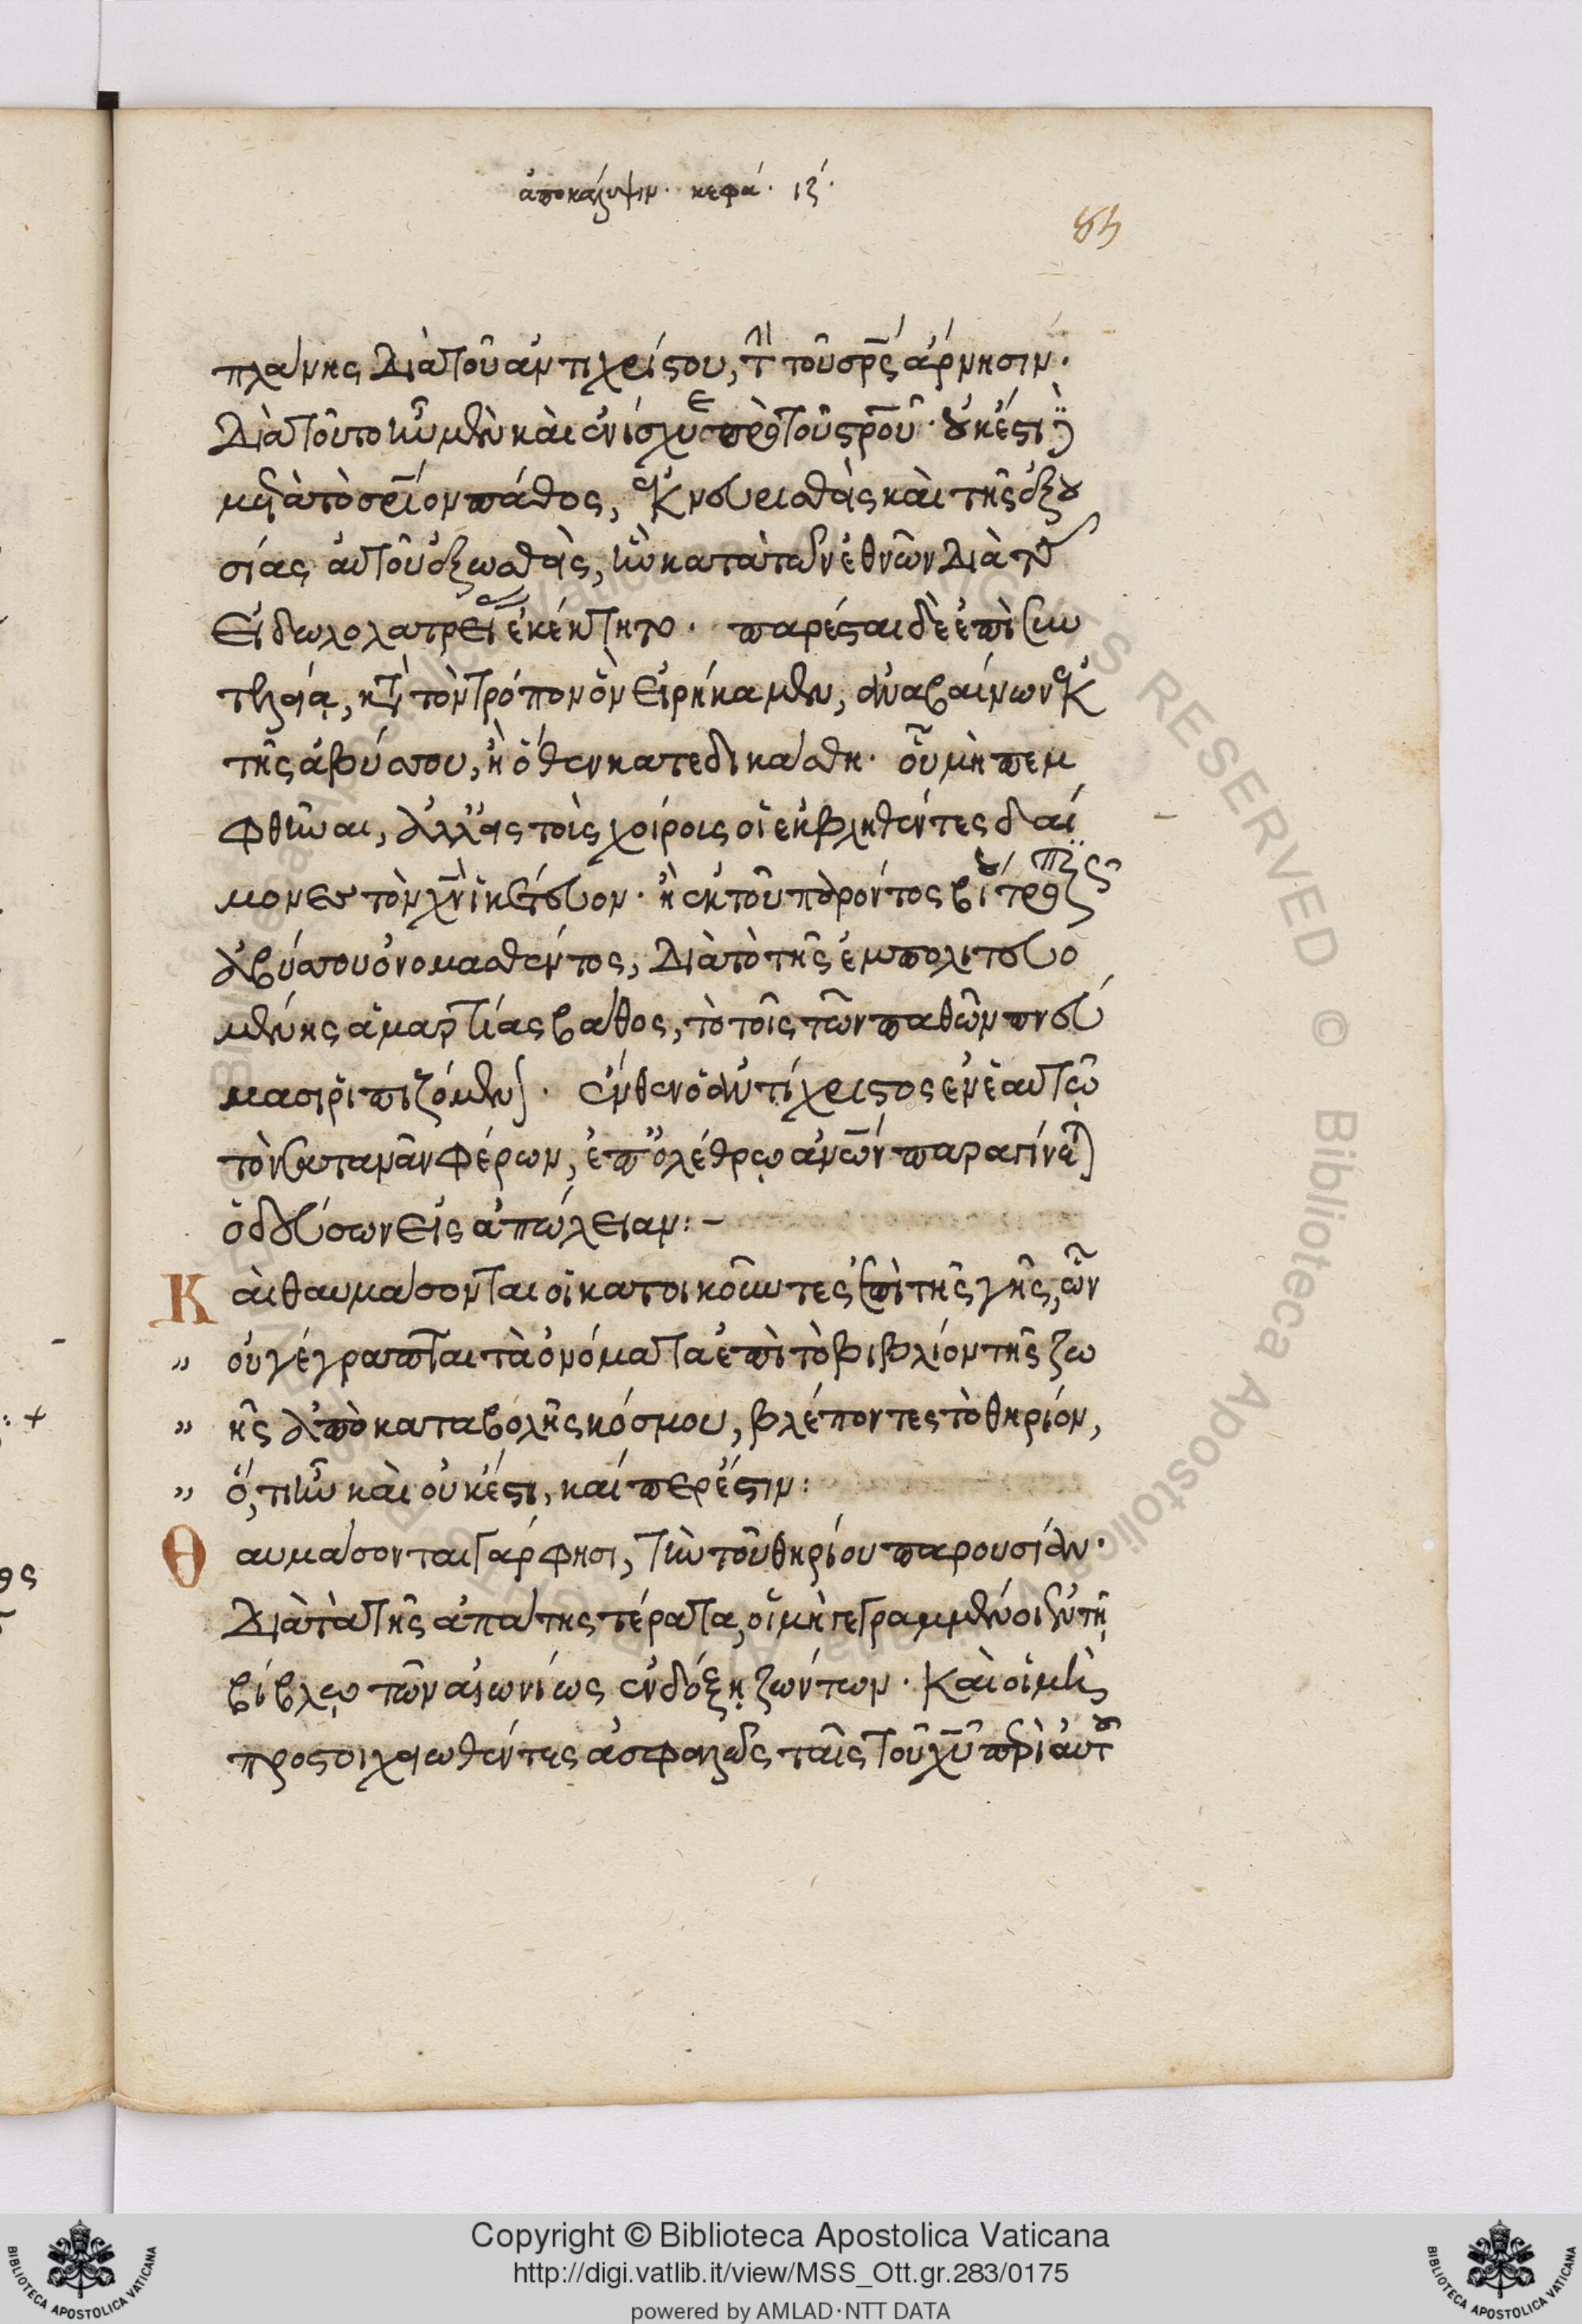 ἀποκάλυψιν. κεφά. ιζ́.
πλάνης διὰ τοῦ ἀντιχρίστου, τὴν τοῦ σρ̅ς ἄρνησιν.
διὰ τοῦτο ἦν μὲν καὶ ἐνίσχυε πρὸ τοῦ στρο̅υ. οὐκέστι δὲ
μετὰ τὸ σρ̅ιον πάθος, ἐκνευρισθὰς καὶ τῆς ἐξου
σίας αὐτοῦ ἐξωσθὰς, ἣν κατὰ τῶν ἐθνῶν διὰ τῆς
εἰδωλολατρείας ἐκέκτητο. παρέσται δὲ ἐπὶ συν
τελεία, κατὰ τὸν τρόπον ὃν εἰρήκαμεν, ἀναβαίνων ἐκ
τῆς ἀβύσσου, ἢ ὅθεν κατεδικάσθη. οὗ μὴ πεμ
φθῆναι, ἀλλ' εἰς τοὺς χοίρους οἱ ἐκβληθέντες δαί
μονες τὸν χν̅ ἱκέτευον. ἢ ἐκ τοῦ παρόντος βίου τροπικῶς
ἀβύσσου ὀνομασθέντος, διὰ τὸ τῆς ἐμπολιτευο
μένης ἁμαρτίας βάθος, τὸ τοῖς τῶν παθῶν πνεύ
μασι ῥιπιζόμενον. ἔνθεν ὁ ἀντίχριστος ἐν ἑαυτῷ
τὸν σατανᾶν φέρων, ἐπ' ὀλέθρῳ ἀν̅ων παραγίνεται
ὁδεύσων εἰς ἀπώλειαν:–
Καὶ θαυμάσονται οἱ κατοικοῦντες ἐπὶ τῆς γῆς, ὧν
" οὐ γέγραπται τὰ ὀνόματα ἐπὶ τὸ βιβλίον τῆς ζω
" ῆς ἀπὸ καταβολῆς κόσμου, βλέποντες τὸ θηρίον,
" ὅ,τι ἦν καὶ οὐκέστι, καίπερ ἔστιν:
Θαυμάσονται γάρ φησι, τὴν τοῦ θηρίου παρουσίαν.
διὰ τὰ τῆς ἀπάτης τέρατα, οἱ μὴ γεγραμμένοι ἐν τῇ
βίβλῳ τῶν αἰωνίως ἐν δόξῃ ζώντων. καὶ οἱ μὴ
προστοιχειωθέντες ἀσφαλῶς ταῖς τοῦ χυ̅ περὶ αὐτοῦ
Copyright © Biblioteca Apostolica Vaticana
http://digi.vatlib.it/view/MSS_Ott.gr.283/0175
powered by AMLAD·NTT DATA